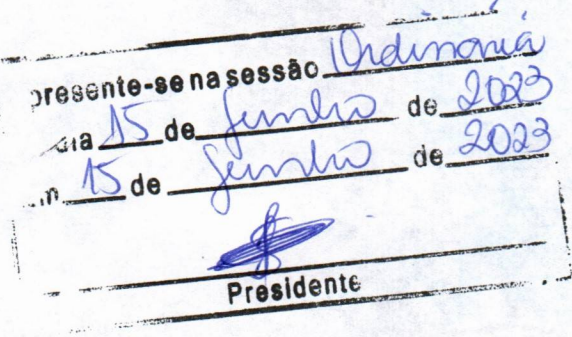 presente-se na sessão Ordinária
dia 15 de Junho de 2023
m 15 de Junho de 2023
Presidente